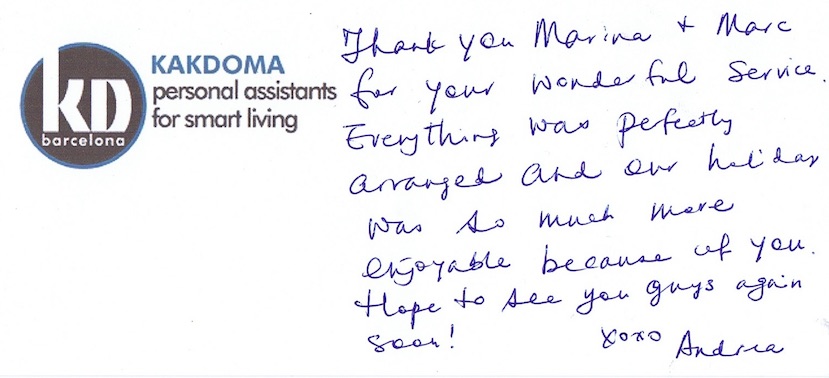 KD
barcelona
KAKDOMA
personal assistants
for smart living
Thank you Marina + Marc
for your wonderful service.
Everything was perfectly
arranged and our holiday
was so much more
enjoyable because of you.
Hope to see you guys again
soon!
xoxo Andrea